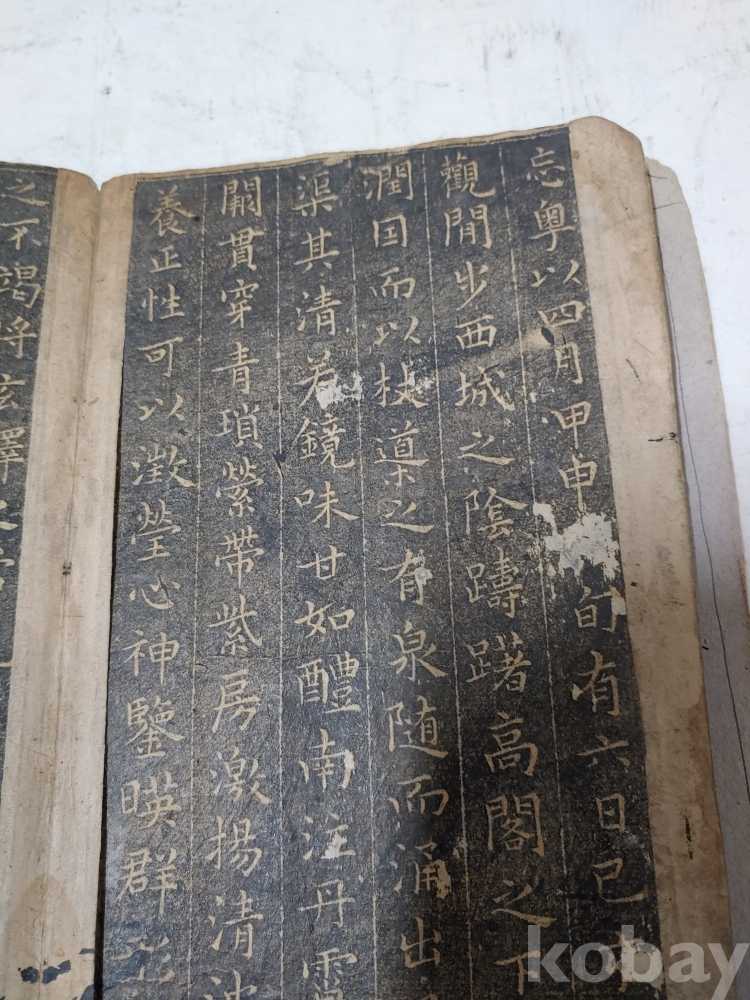 忘粵以四月甲申旬有六日己
觀閒步西城之陰躊躇高閣之下
潤因而以杖導之有泉随而涌出
渠其清若鏡味甘如醴南注丹霄
闕貫穿青瑣縈帶紫房激揚清波
養正性可以澂瑩心神鑒暎群形
之不竭將玄澤之常
kobay